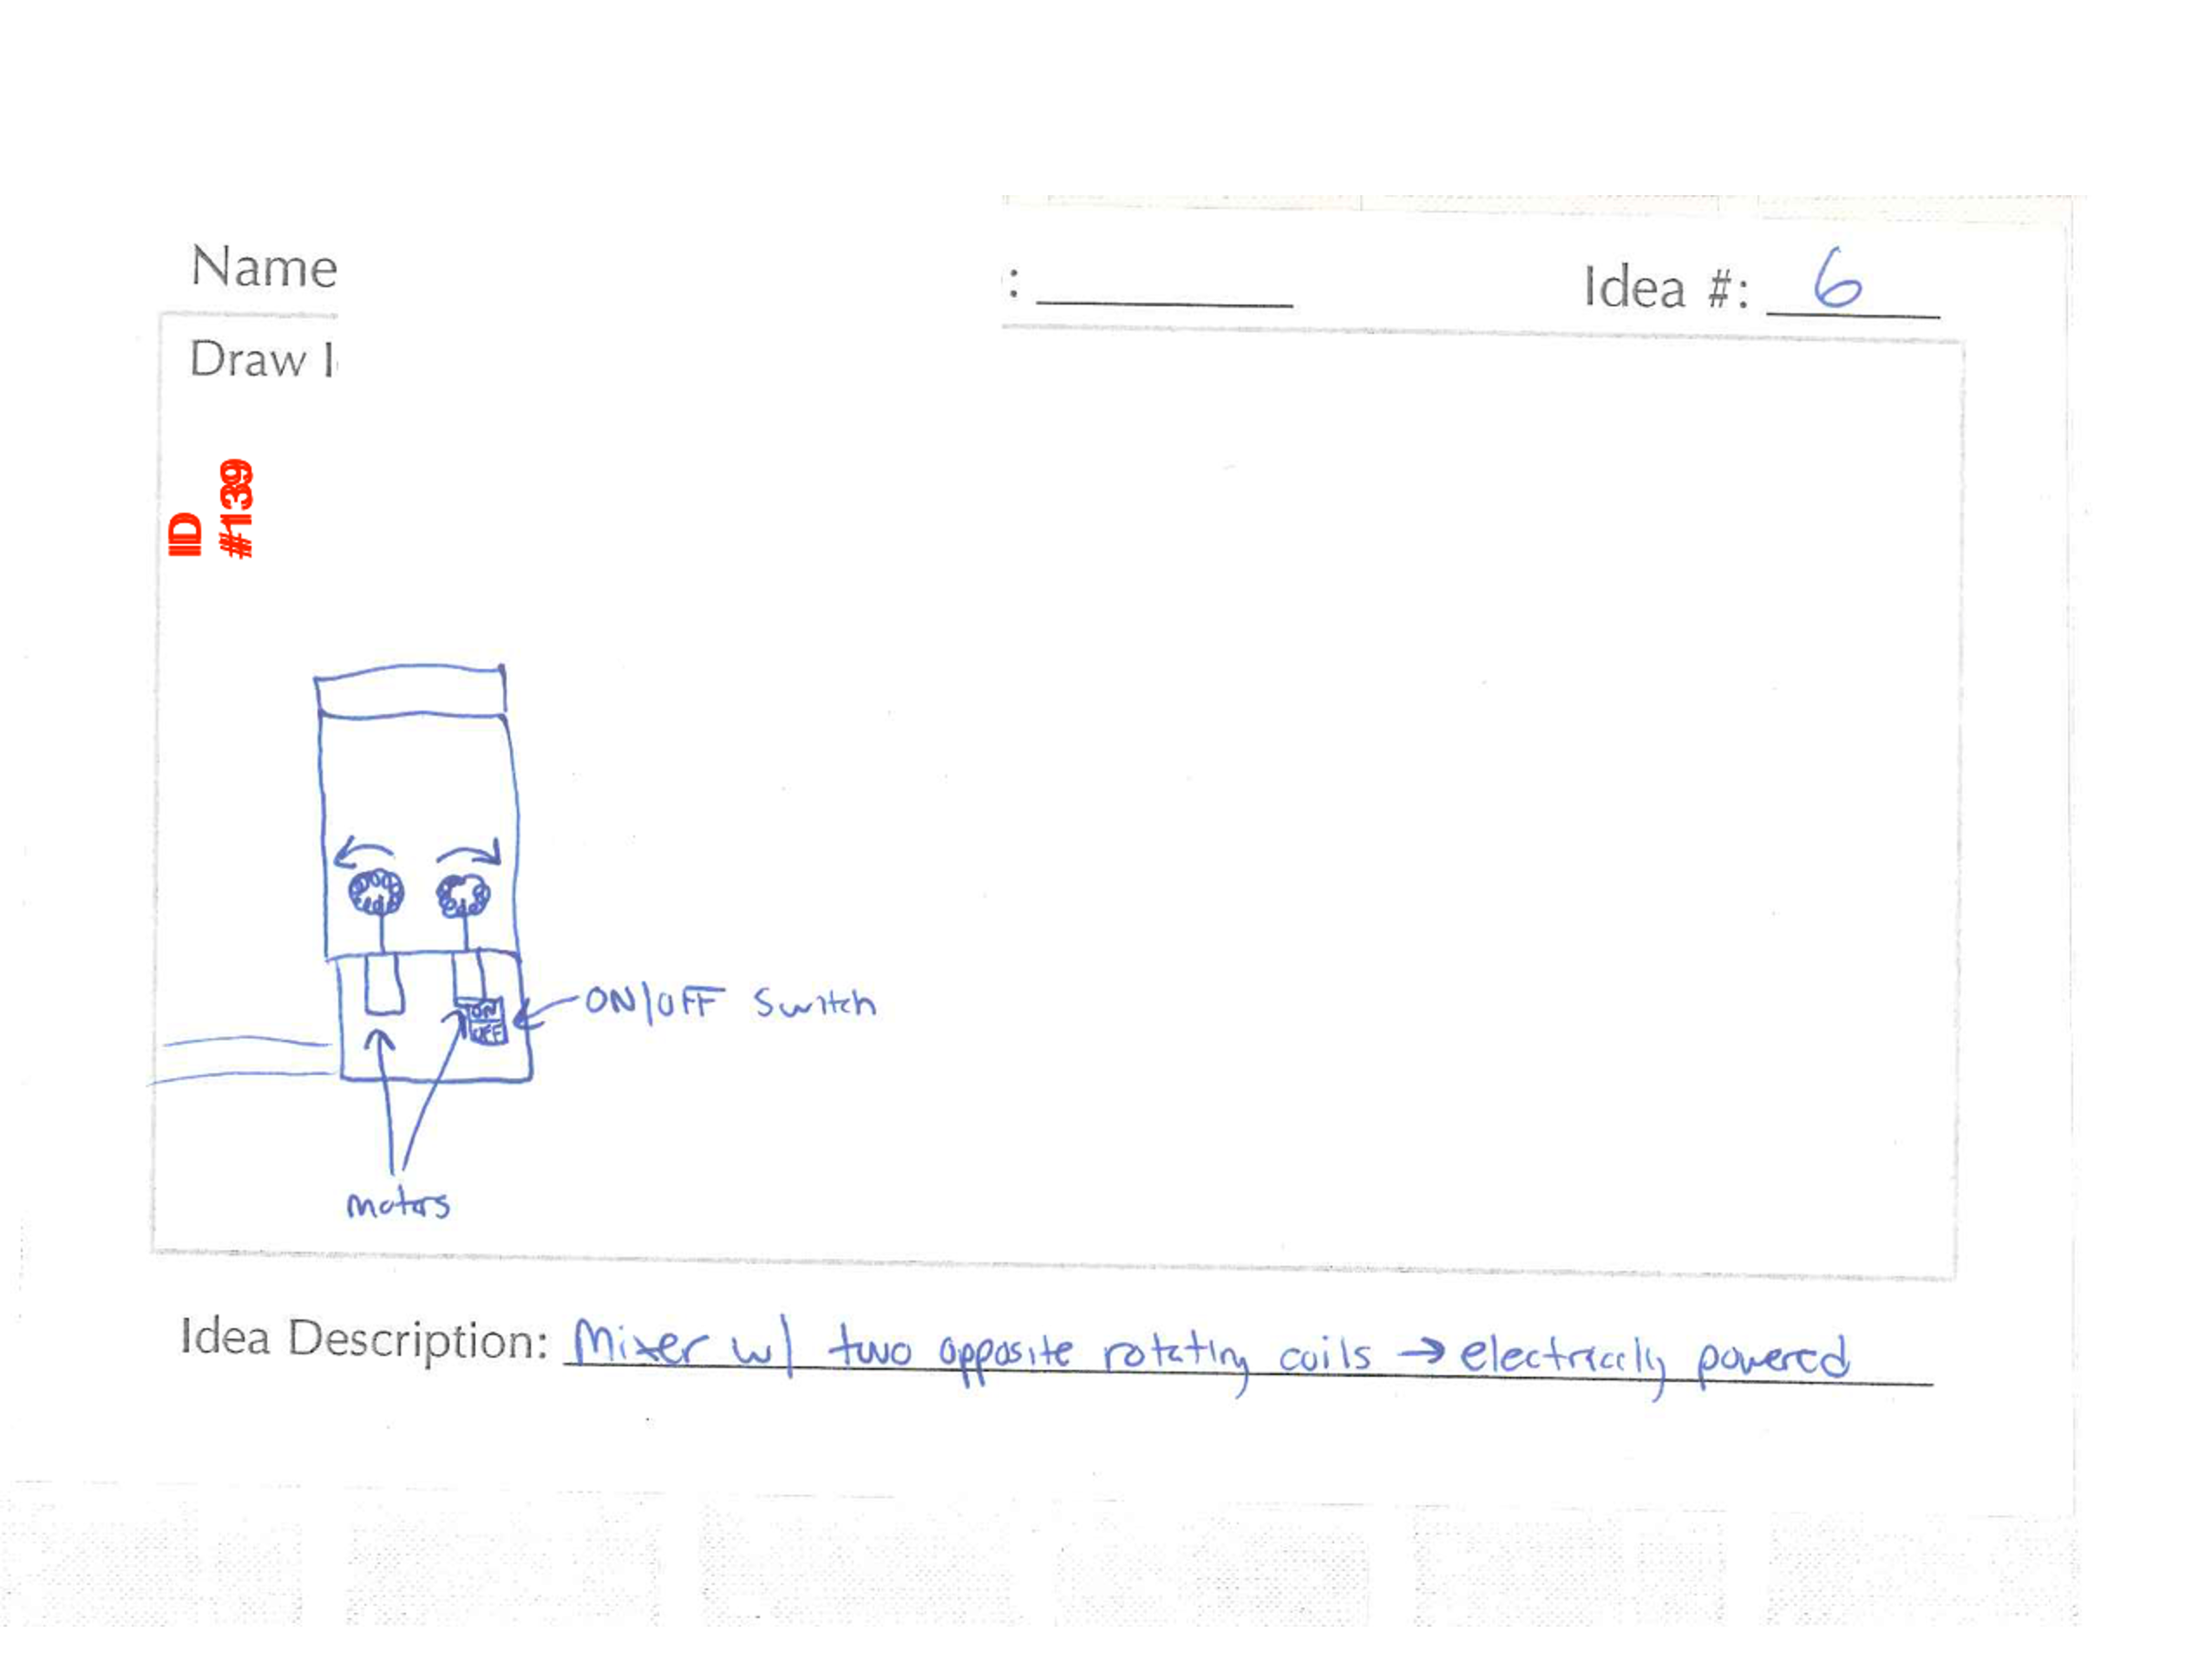 Name : Idea #: 6
Draw I
ID
#139
ON/OFF Switch
ON
OFF
motors
Idea Description: Mixer w/ two opposite rotating coils → electrically powered